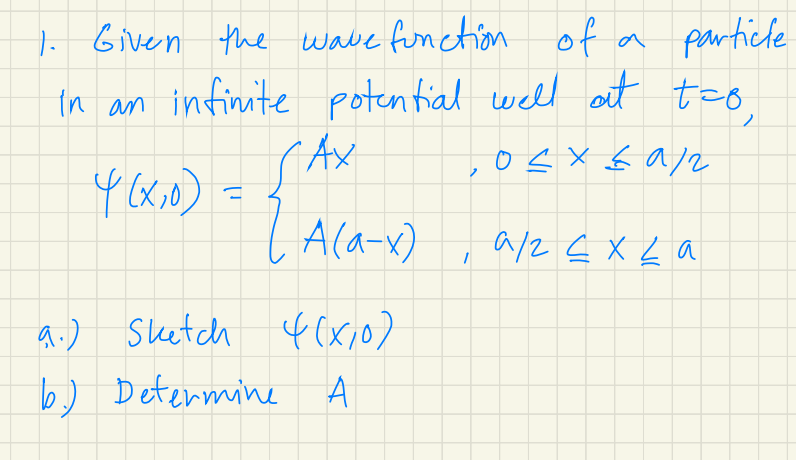 1. Given the wavefunction of a particle
in an infinite potential well at t=0,
Ψ(x,0) = { Ax , 0 ≤ x ≤ a/2
A(a-x) , a/2 ≤ x ≤ a
a.) Sketch Ψ(x,0)
b.) Determine A